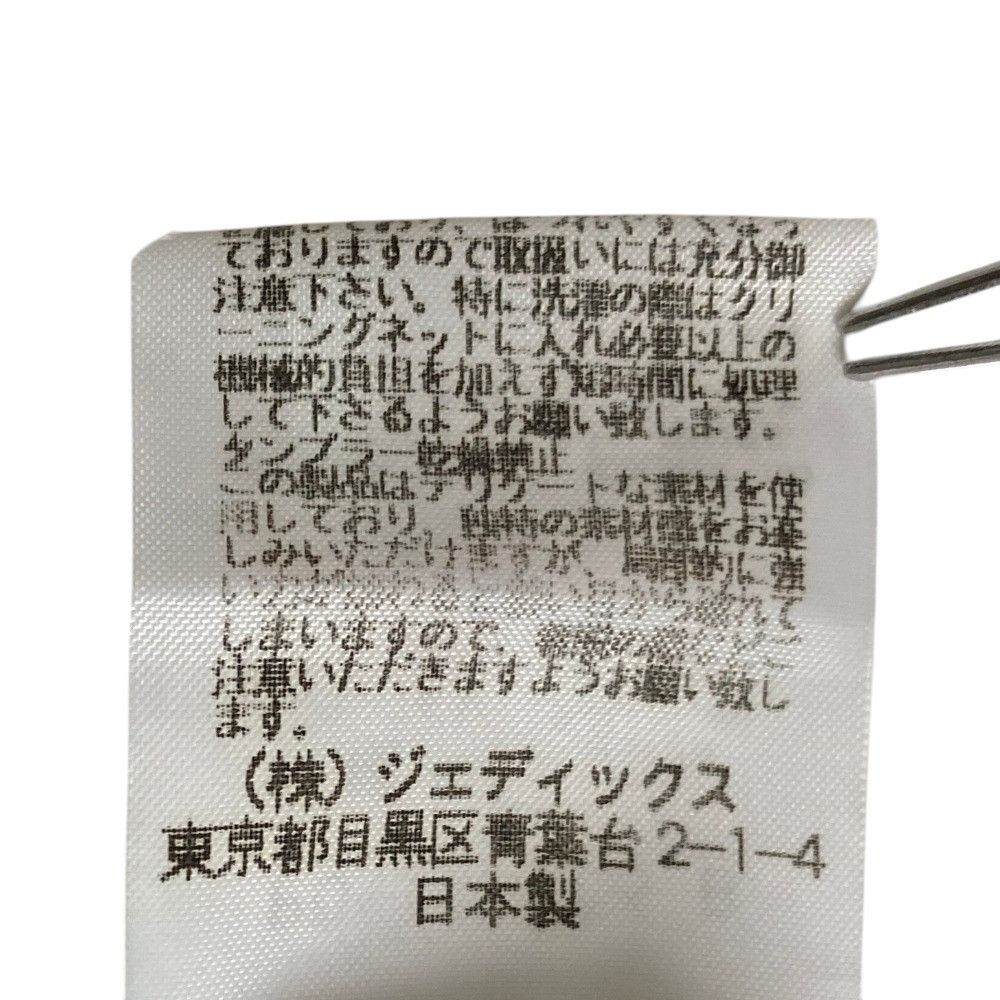 ておりますので取扱いには充分御
注意下さい。特に洗濯の際はクリ
ーニングネットに入れ必要以上の
機械的負担を加えず短時間に処理
して下さるようお願い致します。
タンブラー乾燥禁止
この製品はデリケートな素材を使
用しており、独特の素材感をお楽
しみいただけますが、局部的に強
しまいますので、
注意いただきますようお願い致し
ます。
(株)ジェディックス
東京都目黒区青葉台2-1-4
日本製